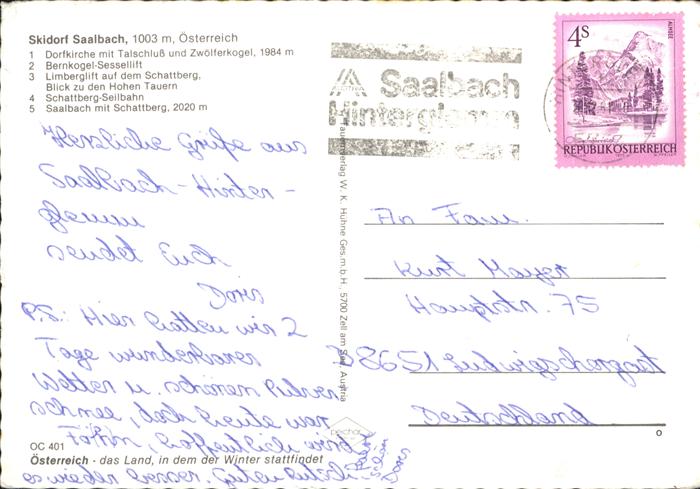 Skidorf Saalbach, 1003 m, Österreich
1 Dorfkirche mit Talschluß und Zwölferkogel, 1984 m
2 Bernkogel-Sessellift
3 Limberglift auf dem Schattberg,
Blick zu den Hohen Tauern
4 Schattberg-Seilbahn
5 Saalbach mit Schattberg, 2020 m
Herzliche Grüße aus
Saalbach-Hinter-
glemm
sendet Euch
Doris
P.S.: Hier hatten wir 2
Tage wunderbares
Wetter u. schönen Pulver
schnee, doch heute war
Föhn, hoffentlich wird
es wieder besser. Guten Rutsch
Doris
OC 401
Österreich - das Land, in dem der Winter stattfindet
Tauernverlag W. K. Huhne Ges.m.b.H., 5700 Zell am See, Austria
AUSTRIA
Saalbach
Hinterglemm
4S
ALMSEE
REPUBLIK ÖSTERREICH
An Fam.
Kurt Mayer
Hauptstr. 75
D 8651 Ludwigschorgast
Deutschland